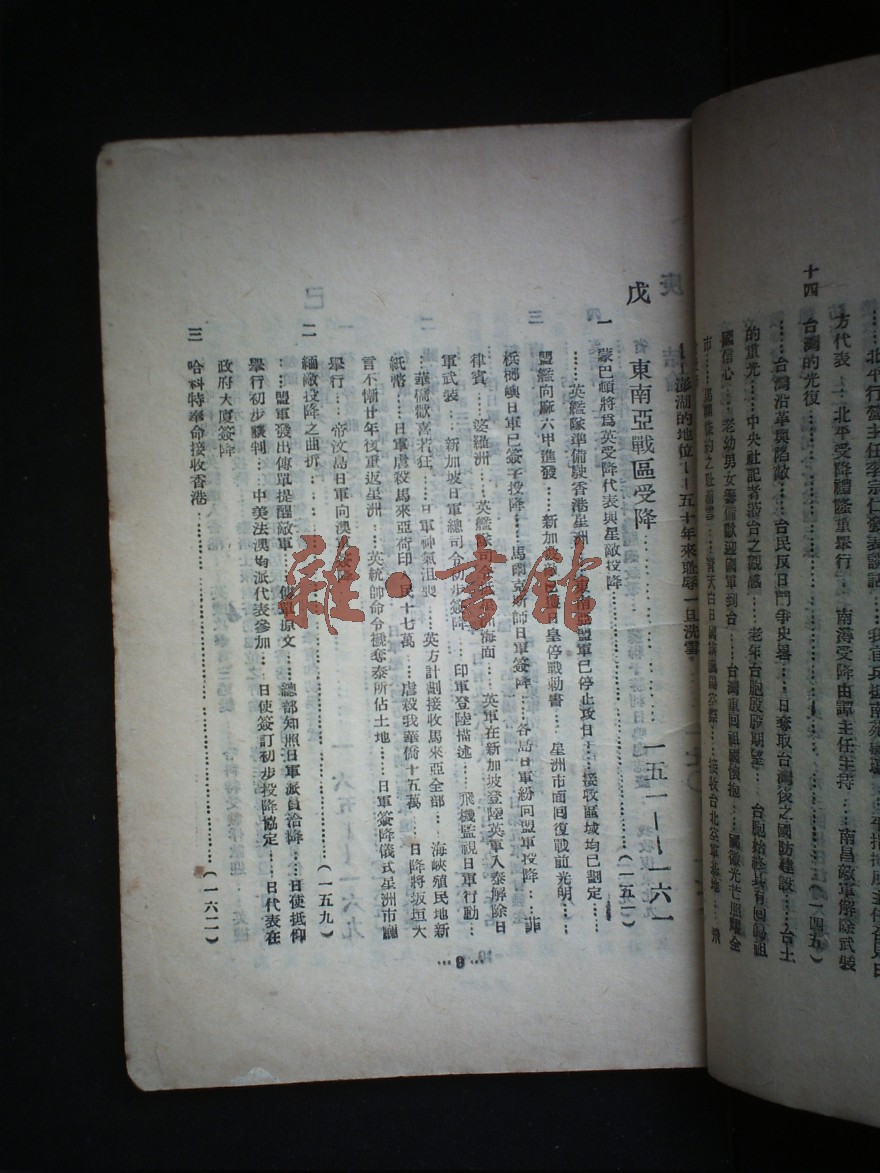 十四 台灣的光復……(一四五)
……台灣沿革與陷敵……台民反日鬥爭史畧……日奪取台灣後之國防建設……台土
的重光……中央社記者蒞台之觀感……老年台胞殷殷期望……台胞始終具有回歸祖
國信心……老幼男女籌備歡迎國軍到台……台灣重回祖國懷抱……國徽光芒照耀全
澎湖的地位……五十年來恥辱一旦洗雪
戊 東南亞戰區受降……一五一——一六一
一 蒙巴頓將爲英受降代表與星敵投降……(一五一)
……英艦隊準備駛香港星洲……東南亞盟軍已停止攻日……接收區域均已劃定……
盟艦向麻六甲進發……新加坡 日皇停戰勅書……星洲市面回復戰前光明……
檳榔嶼日軍已簽字投降……馬 日軍簽降……各島日軍紛向盟軍投降……菲
律賓……婆羅洲……英艦 海面……英軍在新加坡登陸英軍入泰解除日
軍武裝……新加坡日軍總司令初步簽降……印軍登陸描述……飛機監視日軍行動…
…華僑歡喜若狂……日軍神氣沮喪……英方計劃接收馬來亞全部……海峽殖民地新
紙幣……日軍虐殺馬來亞荷印 民十七萬……虐殺我華僑十五萬……日降將坂垣大
言不慚廿年後重返星洲……英統帥命令襯奪泰所佔土地……日軍簽降儀式星洲市廳
舉行……帝汶島日軍向澳
二 緬敵投降之曲折……(一五九)
……盟軍發出傳單提醒敵軍……傳單原文……總部知照日軍派員洽降……日使抵仰
舉行初步談判……中美法澳均派代表參加……日使簽訂初步投降協定……日代表在
政府大廈簽降
三 哈科特奉命接收香港……(一六一)
…9…
雜·書館